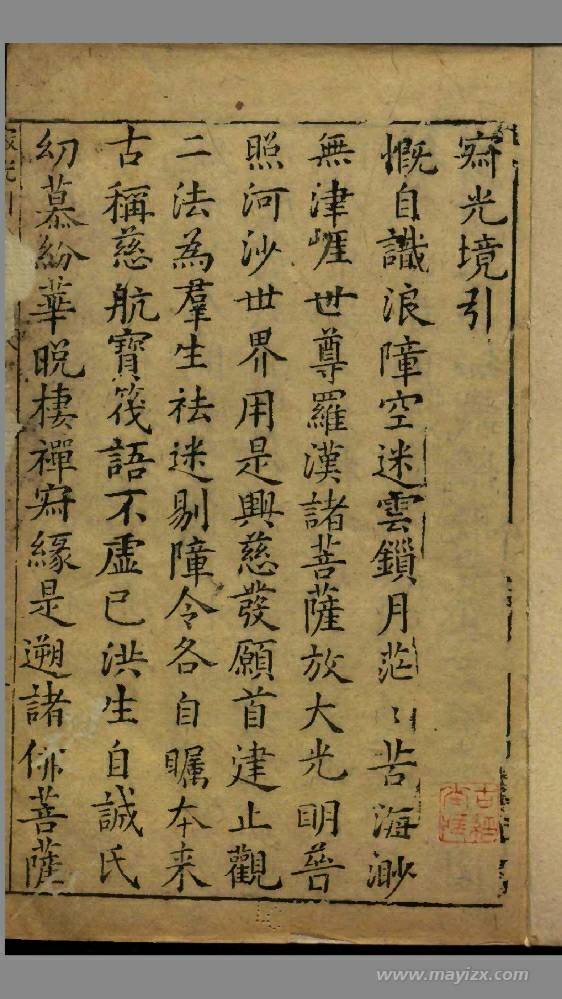 㝥光境引
慨自識浪障空迷雲鎖月茫〻苦海渺
無津崕世尊羅漢諸菩薩放大光明普
照河沙世界用是興慈發願首建止觀
二法為羣生祛迷剔障令各自矚本来
古稱慈航寶筏語不虛已洪生自誠氏
幼慕紛華晩棲禪㝥緣是遡諸佛菩薩
www.mayizx.com